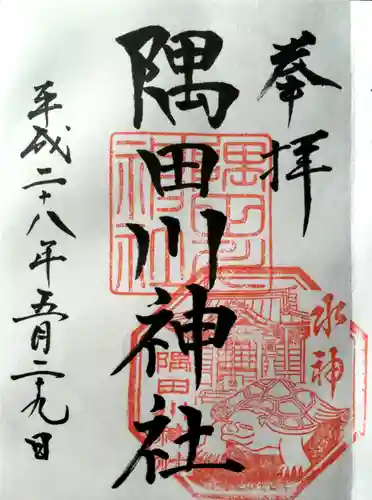 奉拝
隅田川神社
平成二十八年五月二十九日
水神
隅田川神社